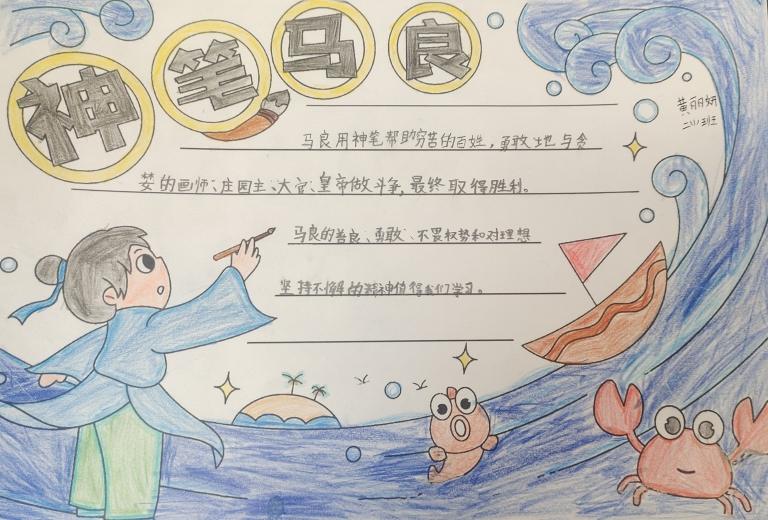 神笔马良
黄丽妍
二(1)班
马良用神笔帮助穷苦的百姓，勇敢地与贪
婪的画师、庄园主、大官、皇帝做斗争，最终取得胜利。
马良的善良、勇敢、不畏权势和对理想
坚持不懈的精神值得我们学习。